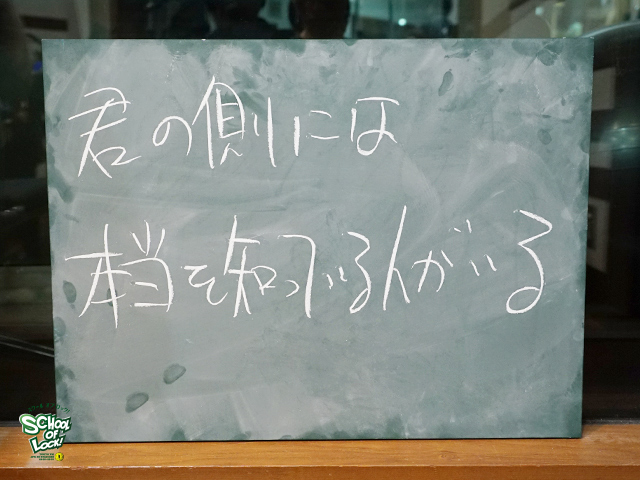 君の側には
本当を知っている人がいる
SCHOOL
OF
LOCK!